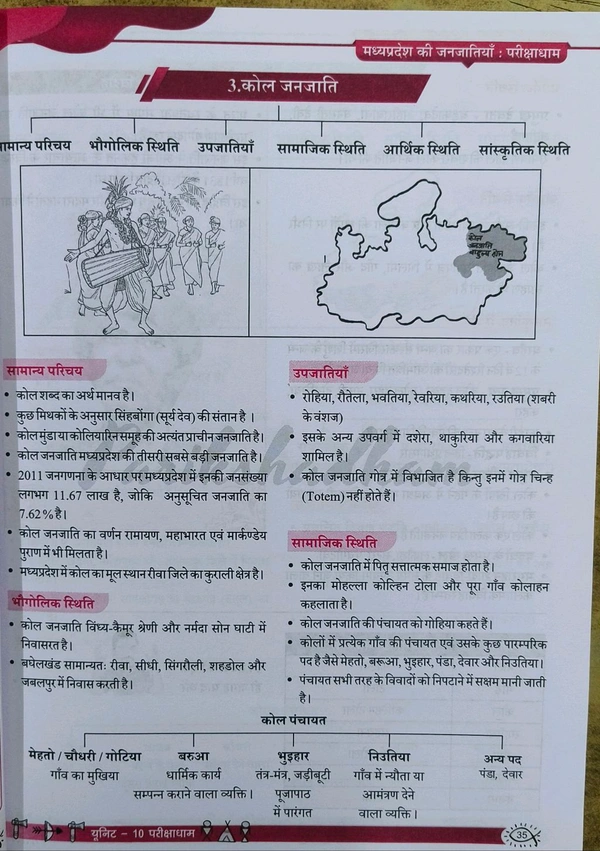 मध्यप्रदेश की जनजातियाँ : परीक्षाधाम
3.कोल जनजाति
ामान्य परिचय भौगोलिक स्थिति उपजातियाँ सामाजिक स्थिति आर्थिक स्थिति सांस्कृतिक स्थिति
कोल
जनजाति
बाहुल्य क्षेत्र
सामान्य परिचय
• कोल शब्द का अर्थ मानव है।
• कुछ मिथकों के अनुसार सिंहबोंगा (सूर्य देव) की संतान है ।
• कोल मुंडा या कोलियारिन समूह की अत्यंत प्राचीन जनजाति है।
• कोल जनजाति मध्यप्रदेश की तीसरी सबसे बड़ी जनजाति है।
• 2011 जनगणना के आधार पर मध्यप्रदेश में इनकी जनसंख्या
लगभग 11.67 लाख है, जोकि अनुसूचित जनजाति का
7.62% है।
• कोल जनजाति का वर्णन रामायण, महाभारत एवं मार्कण्डेय
पुराण में भी मिलता है।
• मध्यप्रदेश में कोल का मूल स्थान रीवा जिले का कुराली क्षेत्र है।
भौगोलिक स्थिति
• कोल जनजाति विंध्य-कैमूर श्रेणी और नर्मदा सोन घाटी में
निवासरत है।
• बघेलखंड सामान्यतः रीवा, सीधी, सिंगरौली, शहडोल और
जबलपुर में निवास करती है।
उपजातियाँ
• रोहिया, रौतेला, भवतिया, रेवरिया, कथरिया, रउतिया (शबरी
के वंशज)
• इसके अन्य उपवर्ग में दशेरा, ठाकुरिया और कगवारिया
शामिल है।
• कोल जनजाति गोत्र में विभाजित है किन्तु इनमें गोत्र चिन्ह
(Totem) नहीं होते हैं।
सामाजिक स्थिति
• कोल जनजाति में पितृ सत्तात्मक समाज होता है।
• इनका मोहल्ला कोल्हिन टोला और पूरा गाँव कोलाहन
कहलाता है।
• कोल जनजाति की पंचायत को गोहिया कहते हैं।
• कोलों में प्रत्येक गाँव की पंचायत एवं उसके कुछ पारम्परिक
पद है जैसे मेहतो, बरूआ, भुइहार, पंडा, देवार और निउतिया।
• पंचायत सभी तरह के विवादों को निपटाने में सक्षम मानी जाती
है।
Parikshadham
कोल पंचायत
मेहतो / चौधरी / गोटिया बरुआ भुइहार निउतिया अन्य पद
गाँव का मुखिया धार्मिक कार्य तंत्र-मंत्र, जड़ीबूटी गाँव में न्यौता या पंडा, देवार
सम्पन्न कराने वाला व्यक्ति। पूजापाठ आमंत्रण देने
में पारंगत वाला व्यक्ति।
यूनिट – 10 परीक्षाधाम 35